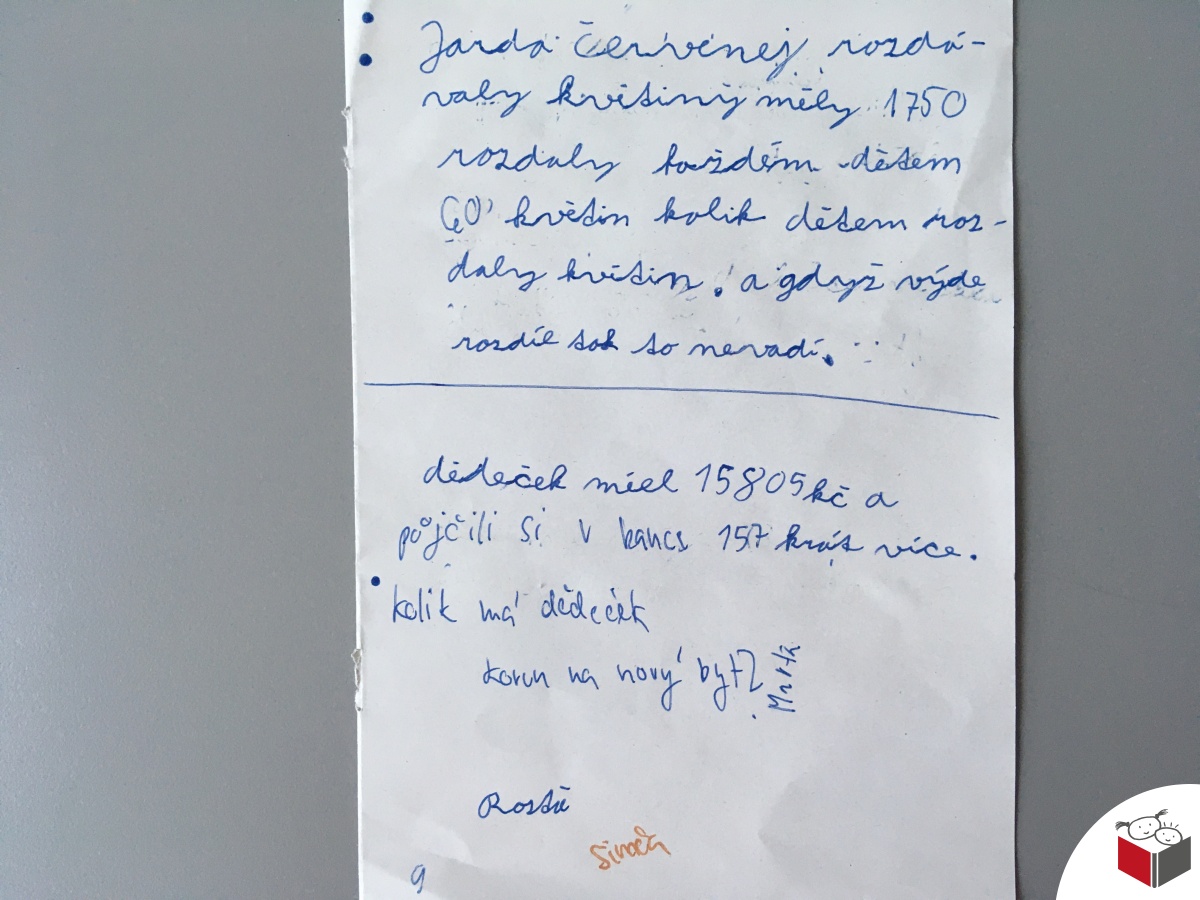 Jarda červenej rozdá-
valy kvitiny měly 1750
rozdaly každém dětem
60 květin kolik dětem roz-
daly kvitin. a gdyž výde
rozdíl tak to nevadí.
dědeček miel 15805 kč a
půjčili si v bancs 157 krát více.
kolik má dědeček
korun na nový byt?
Rosťa
9